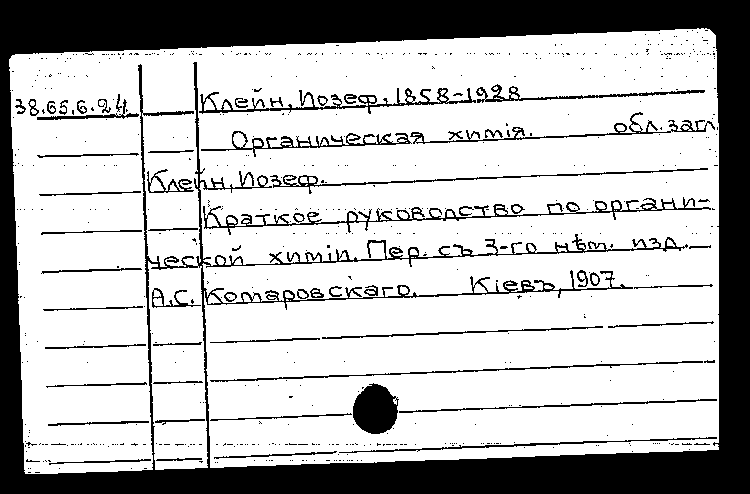 38.65.6.24 Клейн, Иозеф, 1858-1928
Органическая химія. обл. загл
Клейн, Иозеф.
Краткое руководство по органи-
ческой химіи. Пер. съ 3-го нѣм. изд.
А.С. Комаровскаго. Кіевъ, 1907.